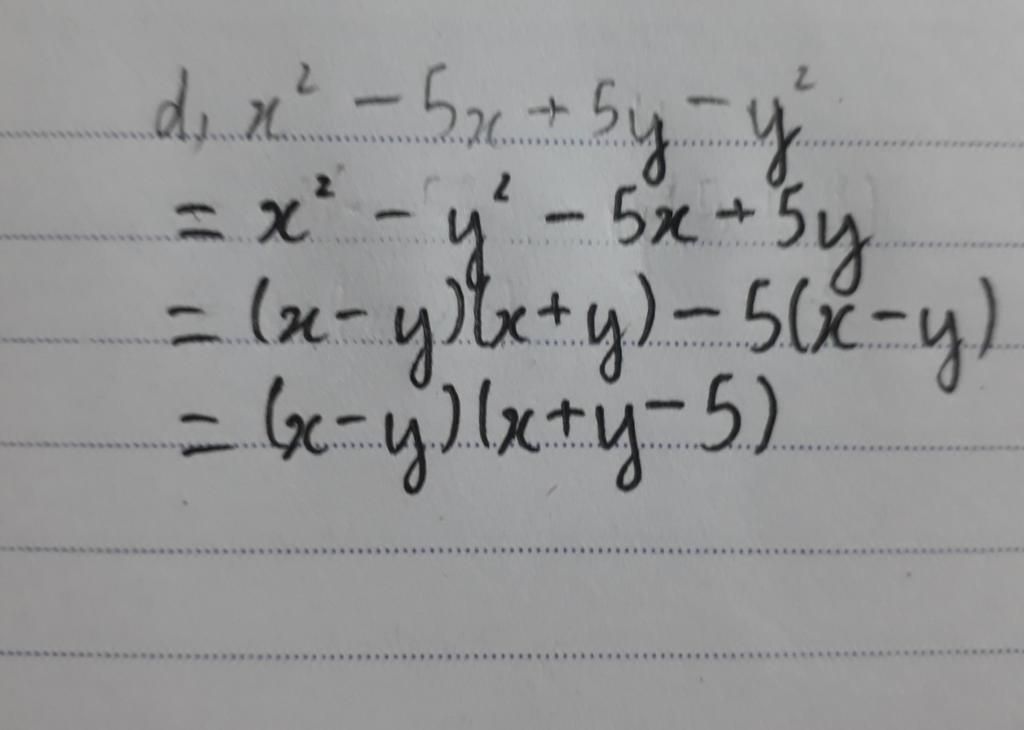 d, x² - 5x + 5y - y²
= x² - y² - 5x + 5y
= (x - y)(x + y) - 5(x - y)
= (x - y)(x + y - 5)